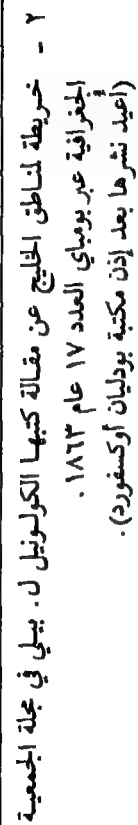 ٢ - خريطة لمناطق الخليج عن مقالة كتبها الكولونيل ل. بيلي في مجلة الجمعية
الجغرافية عبر بومباي العدد ١٧ عام ١٨٦٣.
(أعيد نشرها بعد إذن مكتبة بودليان أوكسفورد).